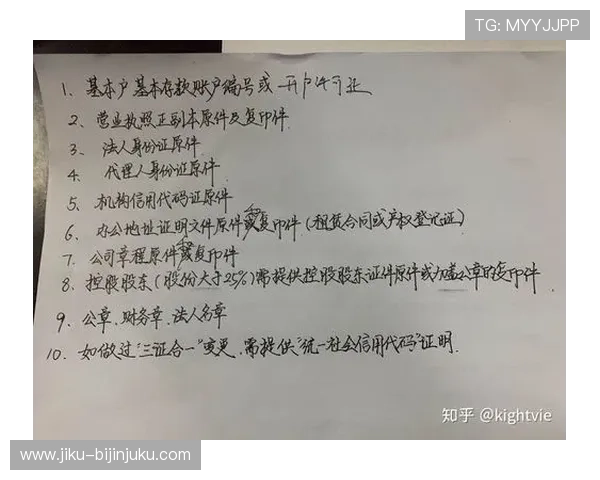 TG: MYYJJPP
1、基本户基本存款账户编号或开户许可证
2、营业执照正副本原件及复印件
3、法人身份证原件
4、代理人身份证原件
5、机构信用代码证原件
6、办公地址证明文件原件和复印件(租赁合同或产权登记证)
7、公司章程原件和复印件
8、控股股东(股份大于25%)需提供控股股东证件原件或加盖公章的复印件
9、公章、财务章、法人名章
10、如做过"三证合一"变更,需提供"统一社会信用代码"证明.
知乎 @kightvie
www.jiku-bijinjuku.com/